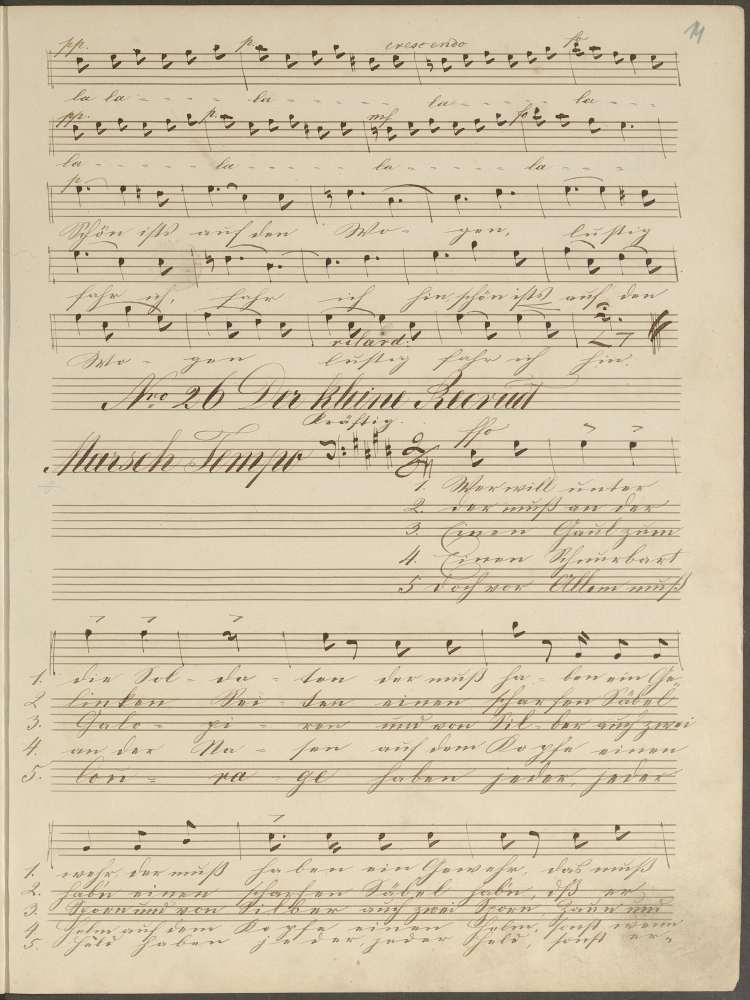 11
pp. p. crescendo fo
la la - - - - la - - - - - la - - - - la - - -
pp. p. mf fo
la - - - - - la - - - - - la - - - - - la - - -
p.
Schön ists auf den Wo - gen, lustig
fahr ich, fahr ich hin schön ists auf den
ritard.
Wo - gen lustig fahr ich hin.
Nro 26 Der kleine Recrudt
Kräftig.
Marsch Tempo ffo
1. Wer will unter
2. der muß an der
3. Einen Gaul zum
4. Einen Schnurbart
5 Doch vor Allem muß
1. die Sol - da - ten der muß ha - ben ein Ge-
2 linken Sei - ten einen scharfen Säbel
3. Galo - pi - ren und von Sil - ber auch zwei
4. an der Na - sen auf dem Kopfe einen
5. Cou - ra - ge haben jeder, jeder
1. wehr, der muß haben ein Gewehr, das muß
2. hab'n einen scharfen Säbel hab'n, dß er
3. Sporn und von Silber auch zwei Sporn, Zaum und
4. Helm auf dem Kopfe einen Helm, sonst wenn
5. Held haben jeder jeder Held, sonst er-